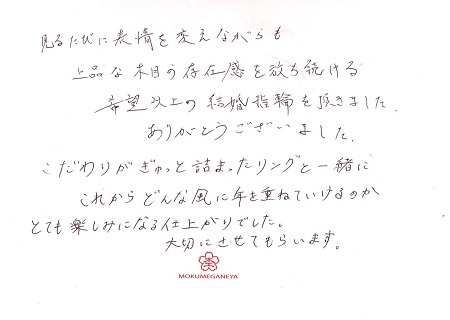 見るたびに表情を変えながらも
上品な木目の存在感を放ち続ける
希望以上の結婚指輪を頂きました。
ありがとうございました。
こだわりがぎゅっと詰まったリングと一緒に
これからどんな風に年を重ねていけるのか
とても楽しみになる仕上がりでした。
大切にさせてもらいます。
MOKUMEGANEYA